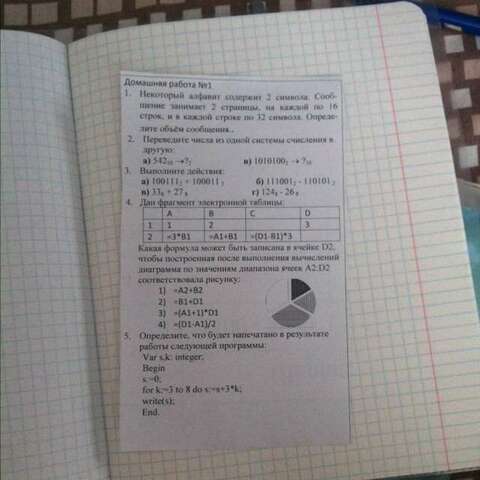 Домашняя работа №1
1. Некоторый алфавит содержит 2 символа. Сооб-
щение занимает 2 страницы, на каждой по 16
строк, и в каждой строке по 32 символа. Опреде-
лите объём сообщения..
2. Переведите числа из одной системы счисления в
другую:
а) 542₁₀ →?₂ в) 1010100₂ → ?₁₀
3. Выполните действия:
а) 100111₂ + 100011₂ б) 111001₂ - 110101₂
в) 33₈ + 27₈ г) 124₈ - 26₈
4. Дан фрагмент электронной таблицы:
A B C D
1 1 2 3
2 =3*B1 =A1+B1 =(D1-B1)*3
Какая формула может быть записана в ячейке D2,
чтобы построенная после выполнения вычислений
диаграмма по значениям диапазона ячеек A2:D2
соответствовала рисунку:
1) =A2+B2
2) =B1+D1
3) =(A1+1)*D1
4) =(D1-A1)/2
5. Определите, что будет напечатано в результате
работы следующей программы:
Var s,k: integer;
Begin
s:=0;
for k:=3 to 8 do s:=s+3*k;
write(s);
End.